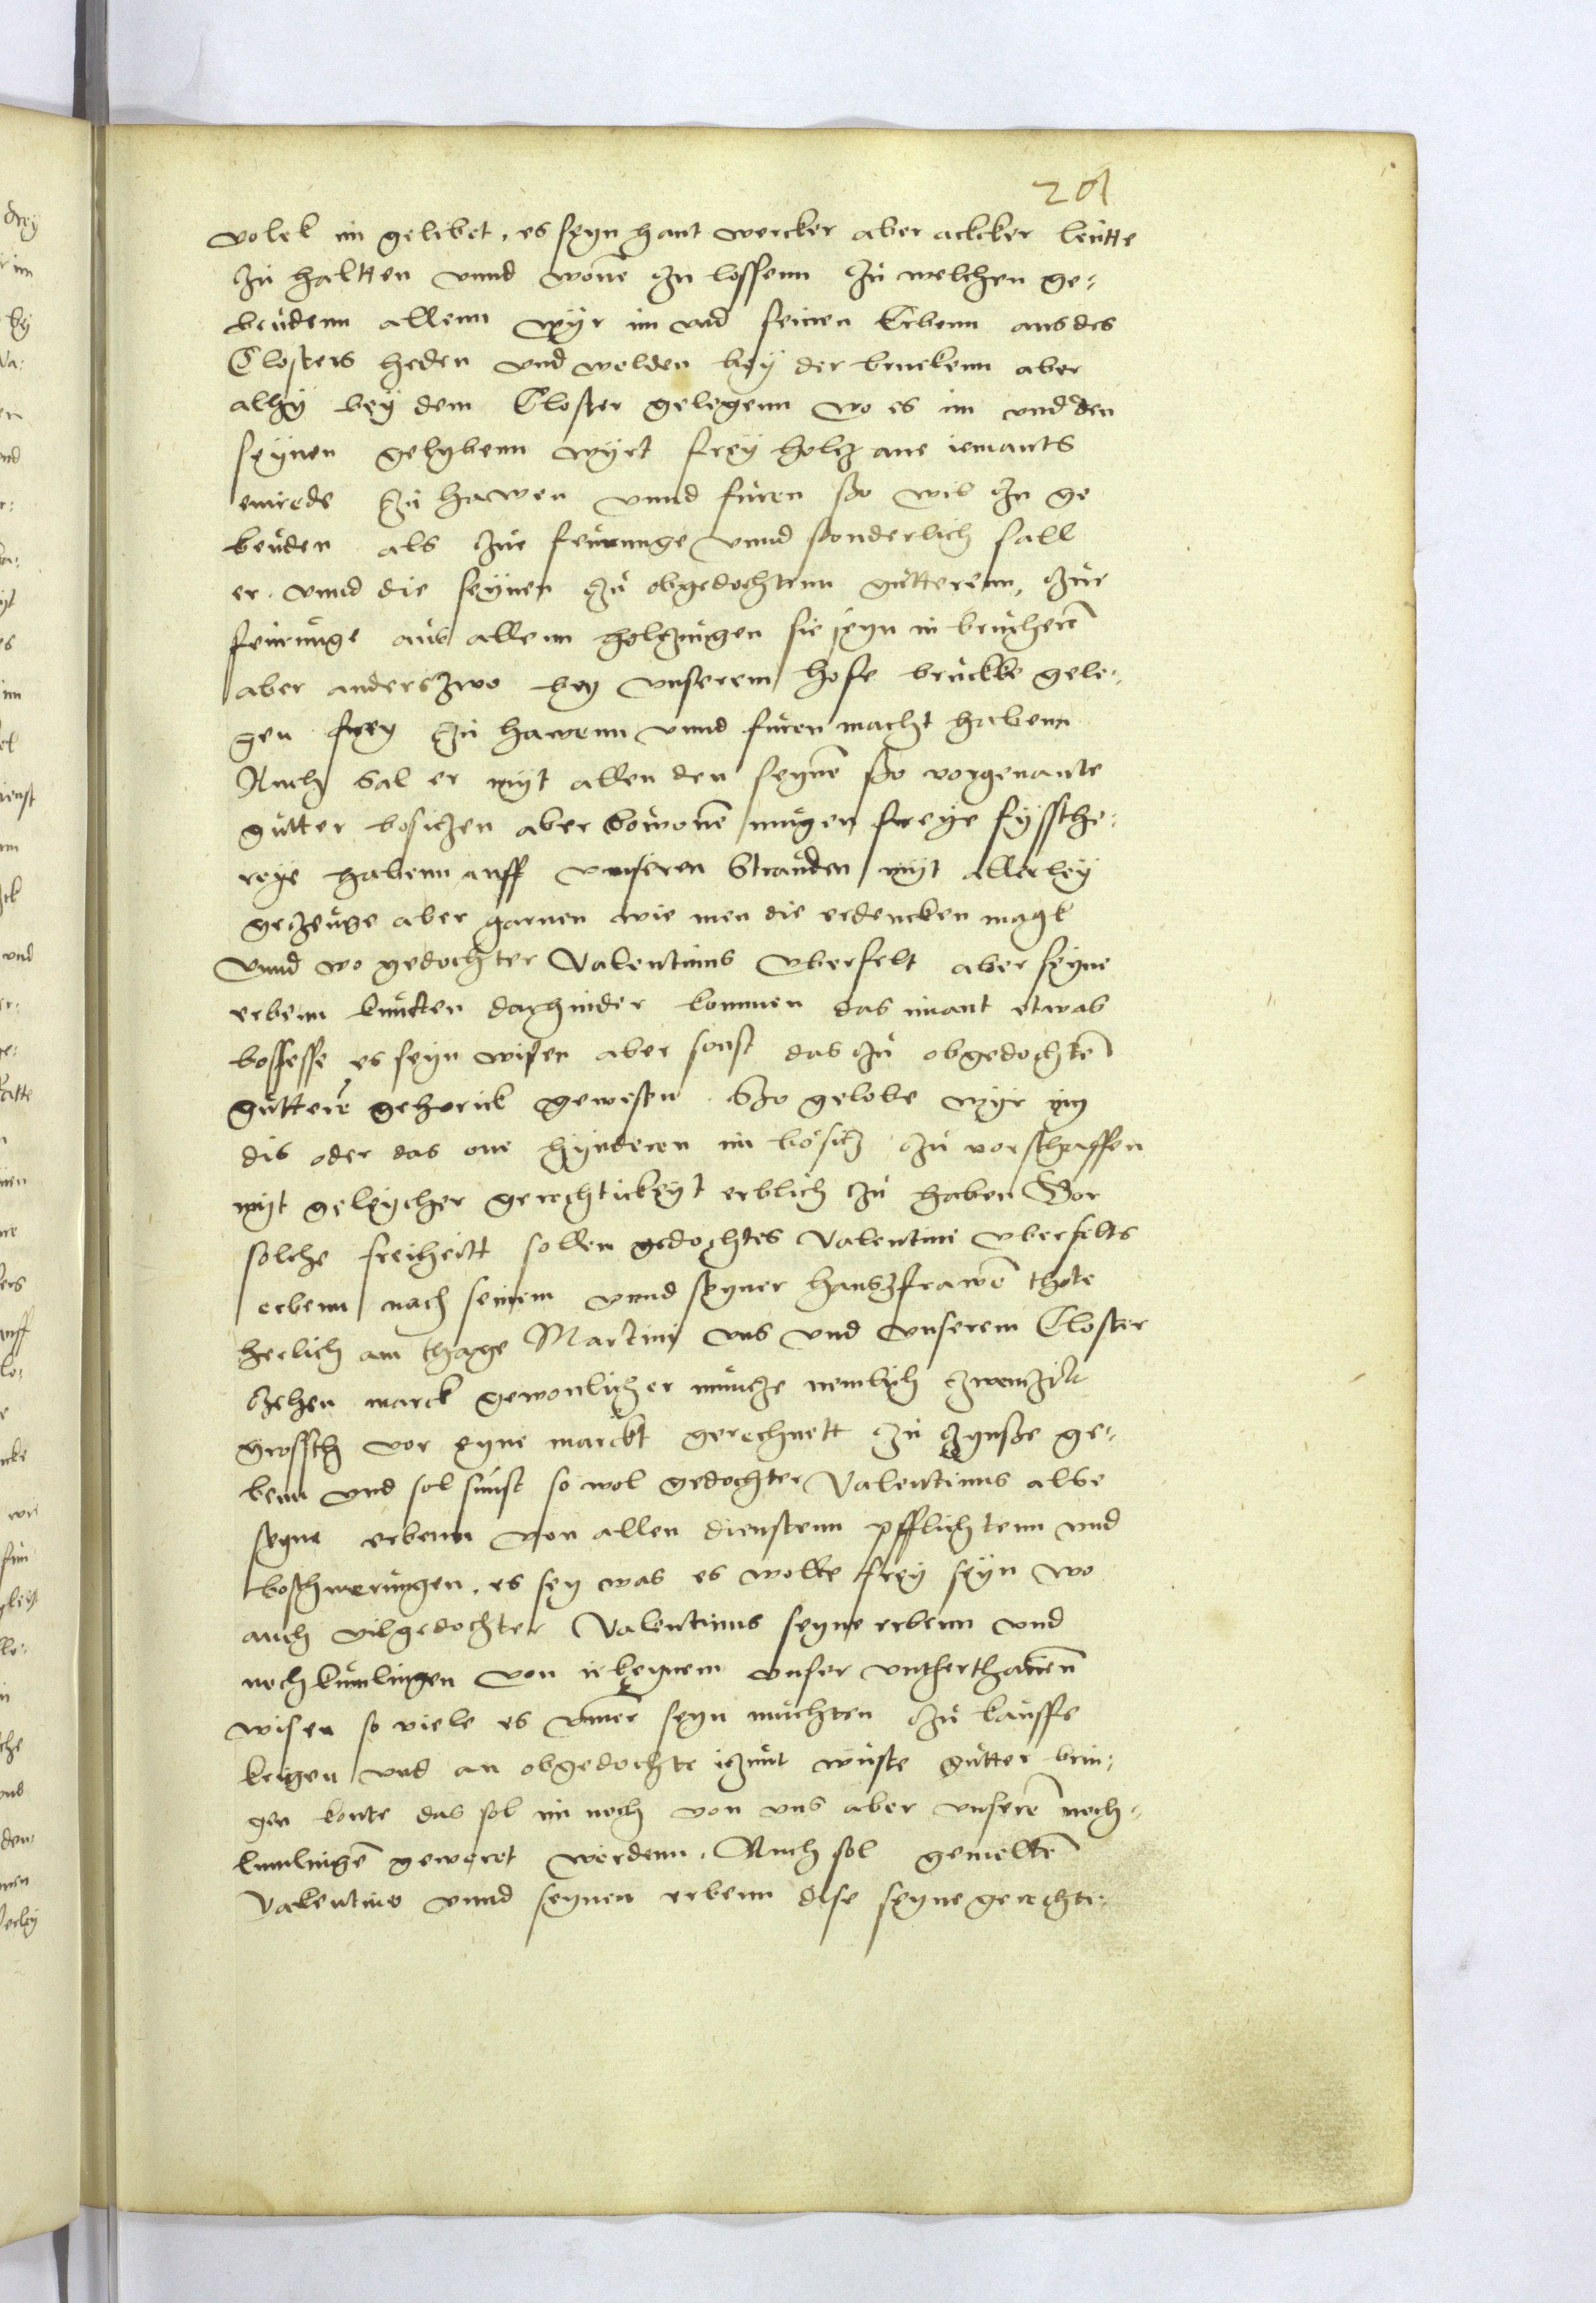 201
volck im gelibet, es seyn hant wercker aber ackcker leutte
zu haltten vnnd wone zu lossenn zu welchen ge¬
beudenn allenn wyr im vnd seinen Erbenn aus des
Closters heden vnd welden bey der bruckenn aber
alhy bey dem Closter gelegenn wo es im vnd den
seynen gelybenn wyrt frey holcz ane iemants
einrede zu hawen vnnd furen szo wie zu ge
beuden als zur feurunge vnnd szonderlich sall
er vnnd die seynen zu obgedochtenn gutterenn, zur
feurunge aus allenn holczungen sie seyn in brucherē
aber anderszwo bey vnserem hofe bruckke gele¬
gen frey zu hawenn vnnd furen macht habenn
Auch sal er myt allen den seynē szo vorgenante
gutter bosiczen aber bowonē mugen freye fyssche¬
reye habenn auff vnseren Stranden myt allerley
geczeuge aber garnen wie men die erdencken magk
Vnnd wo gedochter Valentinus Vberfelt aber seyne
erbenn kunden darhinder kommen das imant etwas
bosesse es seyn wisen aber sonst das zu obgedochtē
gutterē gehorick gewesen Szo gelobe wyr im
dis oder das one hynderen im bositz zu vorschaffen
myt geleycher gerechtickeyt erblich zu haben Vor
solche freiheitt sollen gedochtes Valentini vberfelts
erbenn nach seinem vnnd seyner hauszfrawē thote
herlich am thage Martini vns vnd vnserem Closter
zehen marck gewonlicher muncze nemlich zwenzik
grossch vor eyne marckt gerechnett zu zynsze ge¬
benn vnd sol sunst so wol gedochter Valentinus albe
seyne erbenn von allen dienstenn pfflichtenn vnd
boschwerungen, es sey was es wolle frey seyn wo
auch vilgedochter Valentinus seyne erbenn vnd
nochkumlingen von irkeynem vnser vntherthanenn
wisen so viele es vmer seyn muchten zu kauffe
krigen vnd an obgedochte iczunt wuste gutter brin¬
gen konte das sol im noch von vns aber vnserē noch¬
kumlingē geweret werdenn. Auch sol gemeltē
Valentino vnnd seynen erbenn dise seyne gerechte¬